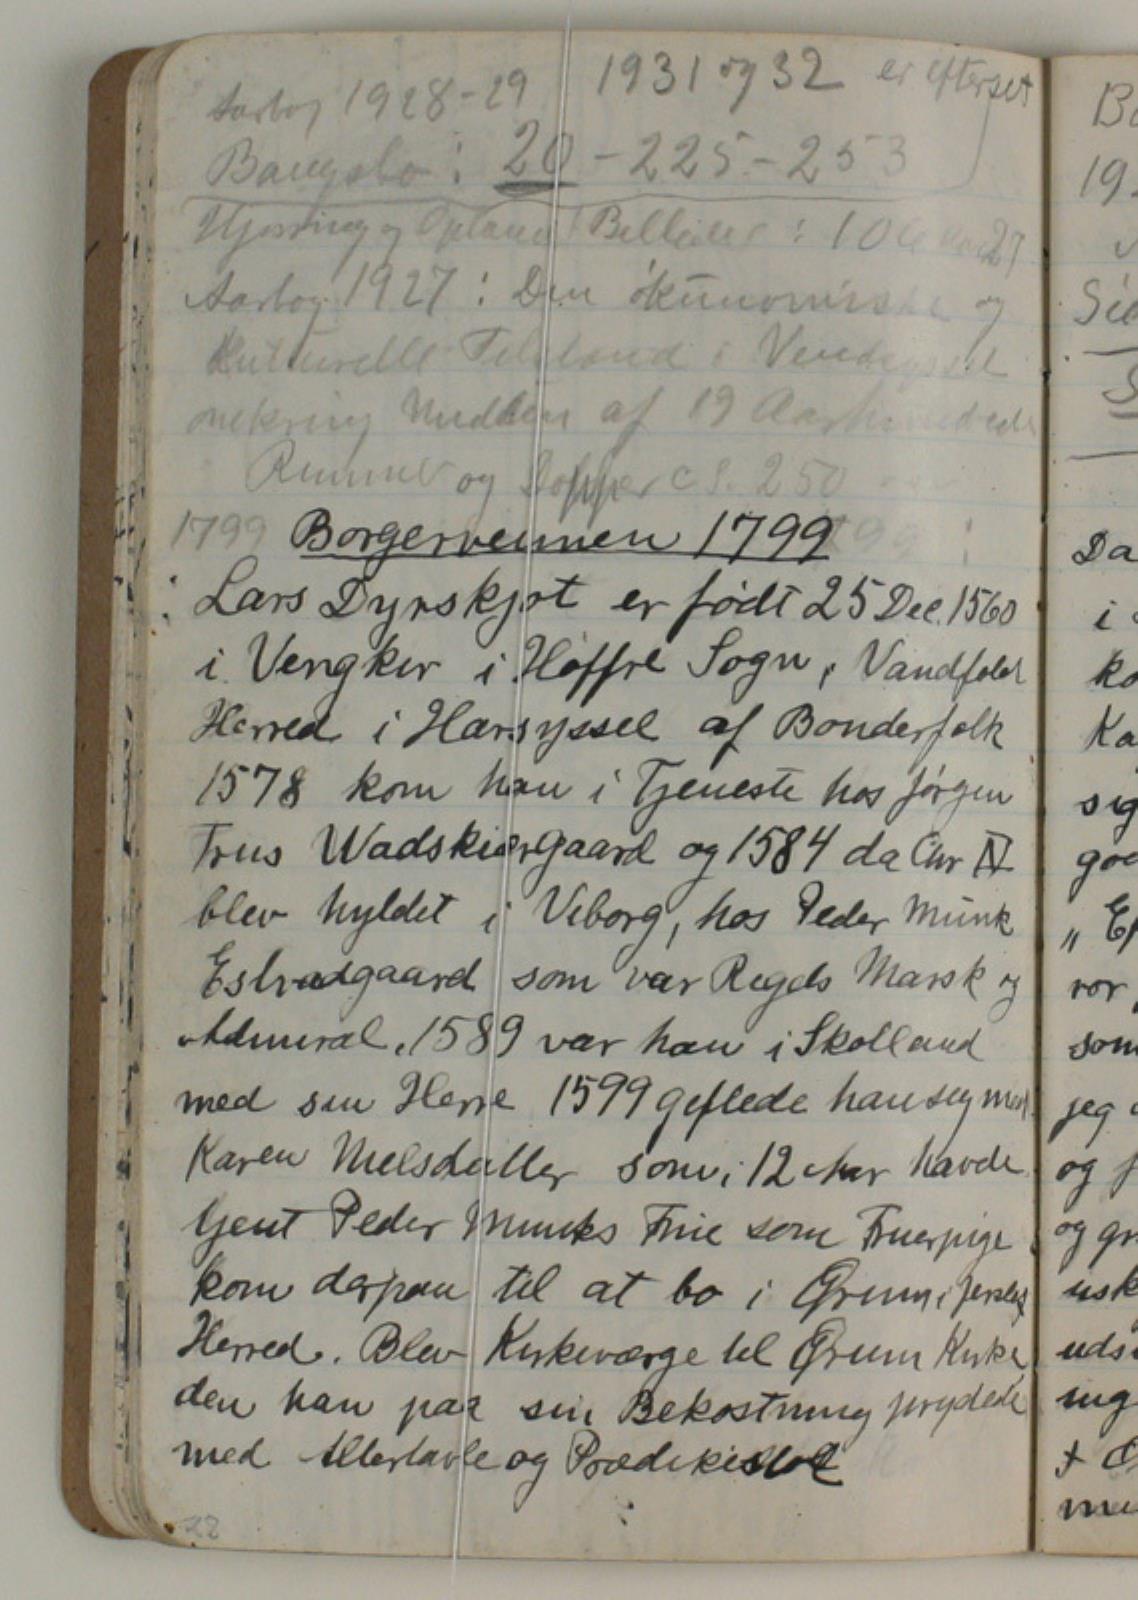 Aarbog 1928-29 1931 og 32 er efterset
Bangsbo: 20 - 225 - 253
Hjørring og Opland Billeder: 27
Aarbog 1927: Den økonomiske og
Kulturelle Tilstand i Vendsyssel
omkring Midten af 19 Aarhundrede
Rimmer og Dopper c S. 250
1799 Borgervennen 1799
: Lars Dyrskjøt er født 25 Dec. 1560
i Vengker i Høffre Sogn, Vandfolds
Herred i Harsyssel af Bonderfolk
1578 kom han i Tjeneste hos Jørgen
Frus Wadskiærgaard og 1584 da Chr IV
blev hyldet i Viborg, hos Peder Munk
Estvadgaard som var Rigets Marsk og
Admiral. 1589 var han i Skotland
med sin Herre 1599 giftede han sig med
Karen Nielsdatter som i 12 Aar havde
tjent Peder Munks Frue som Fruerpige
kom derpaa til at bo i Ørum i Jerslev
Herred. Blev Kirkeværge til Ørum Kirke
den han paa sin Bekostning prydede
med Altertavle og Prædikestol
22
Da
i
ko
Ka
sig
" Ef
vor,
som
jeg
og f
og gr
usk
uds